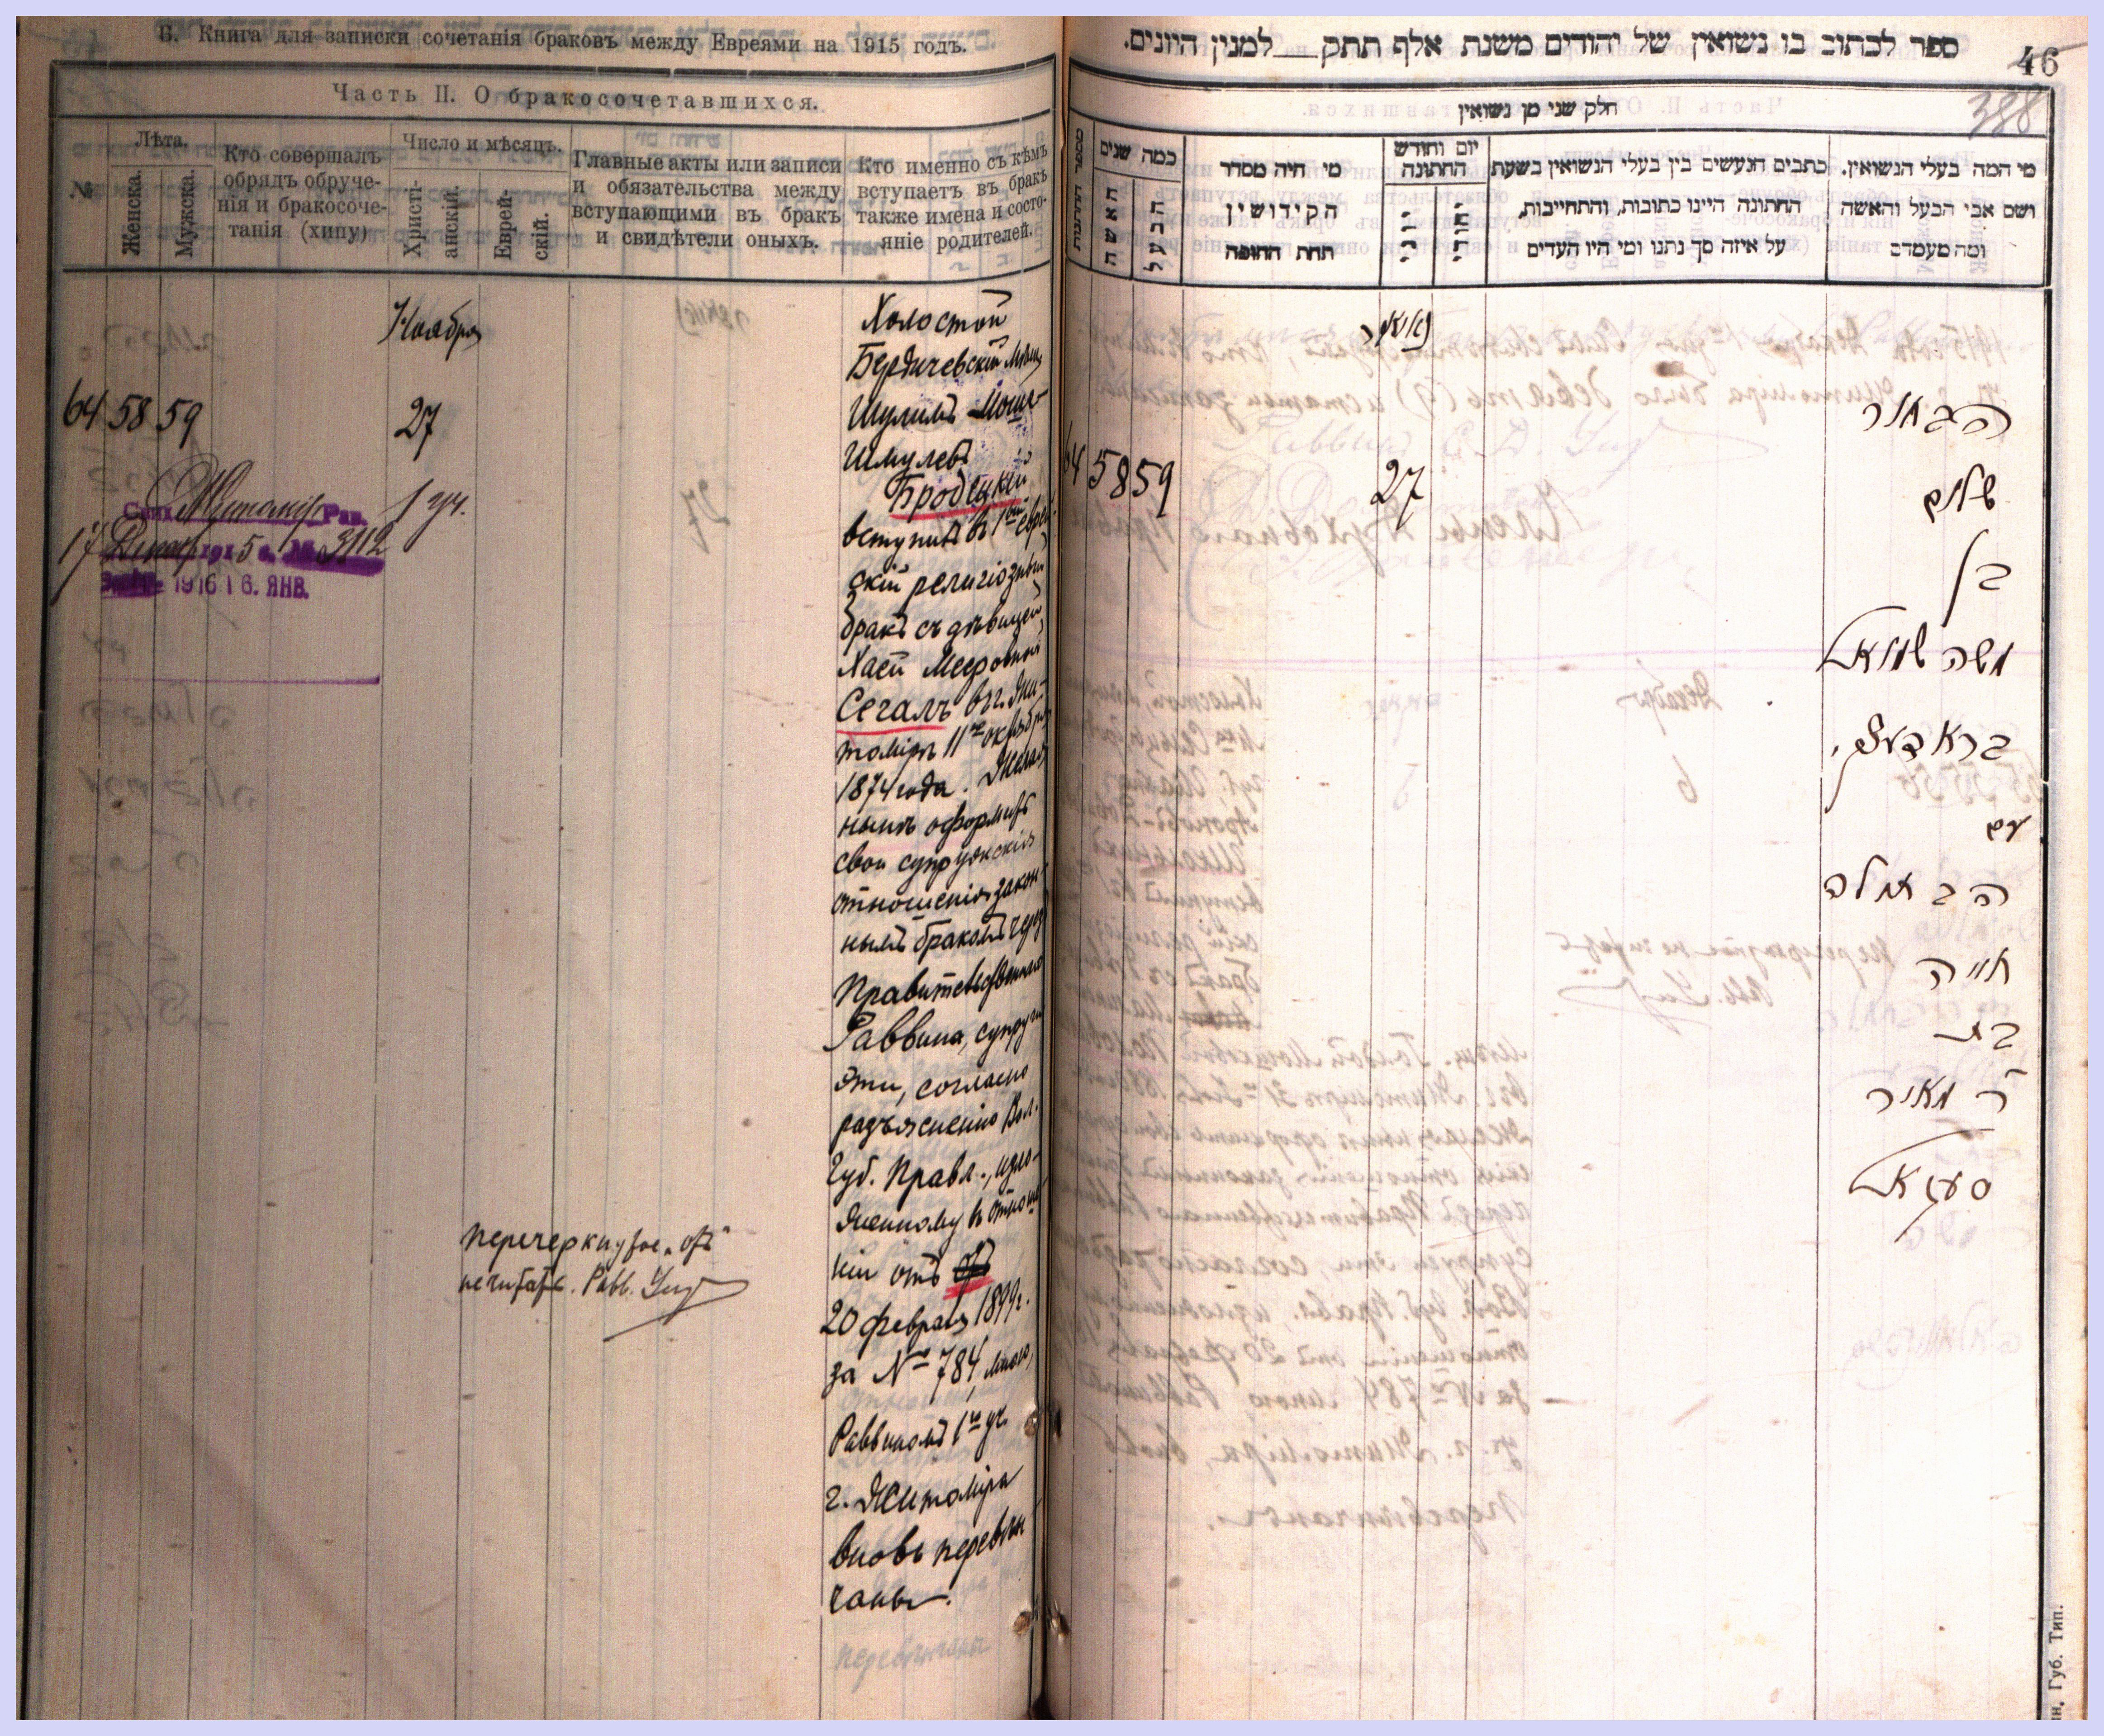 Б. Книга для записки сочетанія браковъ между Евреями на 1915 годъ.
Часть II. О бракосочетавшихся.
№
Лѣта.
Женска.
Мужска.
Кто совершалъ
обрядъ обруче-
нія и бракосоче-
танія (хипу)
Число и мѣсяцъ.
Христі-
анскій.
Еврей-
скій.
Главные акты или записи
и обязательства между
вступающими въ бракъ
и свидѣтели оныхъ.
Кто именно съ кѣмъ
вступаетъ въ бракъ
также имена и состо-
яніе родителей.
Ноября
64 58 59
27
1 уч.
17 1915 г. № 3112
1916 16. ЯНВ.
Холостой
Бердичевскій Мѣщ.
Шулимъ Мош-
Шмулевъ
Бродецкій
вступилъ въ 1ый еврей
скій религіозный
бракъ съ дѣвицей
Хаей Мееровной
Сегалъ въ г. Жи-
томірѣ 11го октября
1874 года. Желая
нынѣ оформить
свои супружскія
отношенія закон-
нымъ бракомъ черезъ
Правительственнаго
Раввина, супруги
эти, согласно
разъясненію Вол.
Губ. Правл., изло-
женному въ отноше-
ніи отъ отъ
20 февраля 1899 г.
за № 784, мною,
Раввиномъ 1го уч.
г. Житоміра
вновь перевѣн
чаны.
перевѣнчаны
перечеркнутое „отъ"
не читать. Равв.
ספר לכתוב בו נשואין של יהודים משנת אלף תתק___למנין היונים.
46
388
חלק שני מן נשואין
מי המה בעלי הנשואין.
ושם אבי הבעל והאשה
ומה מעמדם
כתבים הנעשים בין בעלי הנשואין בשעת
החתונה היינו כתובות, והתחייבות,
על איזה סך נתנו ומי היו העדים
יום וחודש
החתונה
יהודי
יוני
מי היה מסדר
הקידושין
תחת החופה
כמה שנים
הבעל
האשה
מספר החתונות
64 58 59
27
הבחור
שלום
בן
משה שמואל
בראדעצקי
עם
הבתולה
חייה
בת
ר' מאיר
סעגאל
н, Губ. Тип.